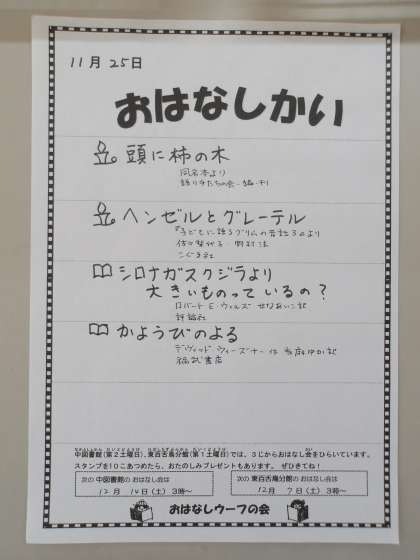 11月25日
おはなしかい
頭に柿の木
同名本より
語り手たちの会・編・刊
ヘンゼルとグレーテル
『子どもに語るグリムの昔話3』より
佐々梨代子・野村泫
こぐま社
シロナガスクジラより
大きいものっているの?
ロバート・E・ウェルズ せなあいこ訳
評論社
かようびのよる
デヴィッド・ウィーズナー作 当麻ゆか訳
福武書店
中図書館(第2土曜日)、東百舌鳥分館(第1土曜日)では、3じからおはなし会をひらいています。
スタンプを10こあつめたら、おたのしみプレゼントもあります。 ぜひきてね!
次の 中図書館の おはなし会は
12月 14日(土)3時～
次の 東百舌鳥分館の おはなし会は
12月 7日(土)3時～
おはなしウーフの会